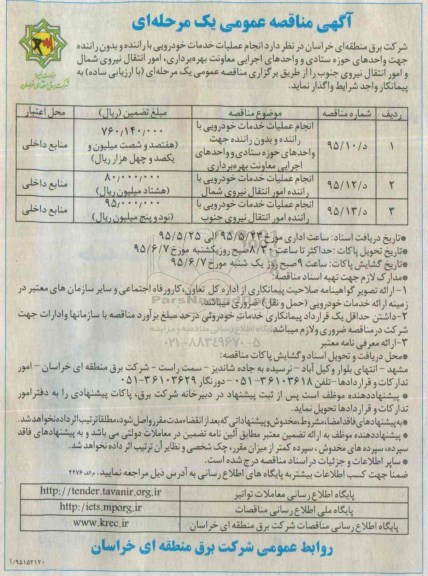 آگهی مناقصه عمومی یک مرحله‌ای
شرکت برق منطقه‌ای خراسان در نظر دارد انجام عملیات خدمات خودرویی با راننده و بدون راننده
جهت واحدهای حوزه ستادی و واحدهای اجرایی معاونت بهره‌برداری، امور انتقال نیروی شمال
و امور انتقال نیروی جنوب را از طریق برگزاری مناقصه عمومی یک مرحله‌ای (با ارزیابی ساده) به
پیمانکار واجد شرایط واگذار نماید.
ردیف شماره مناقصه موضوع مناقصه مبلغ تضمین (ریال) محل اعتبار
۱ د/۹۵/۱۰ انجام عملیات خدمات خودرویی با راننده و بدون راننده جهت واحدهای حوزه ستادی و واحدهای اجرایی معاونت بهره‌برداری ۷۶۰/۱۴۰/۰۰۰ (هفتصد و شصت میلیون و یکصد و چهل هزار ریال) منابع داخلی
۲ د/۹۵/۱۲ انجام عملیات خدمات خودرویی با راننده امور انتقال نیروی شمال ۸۰/۰۰۰/۰۰۰ (هشتاد میلیون ریال) منابع داخلی
۳ د/۹۵/۱۳ انجام عملیات خدمات خودرویی با راننده امور انتقال نیروی جنوب ۹۵/۰۰۰/۰۰۰ (نود و پنج میلیون ریال) منابع داخلی
*تاریخ دریافت اسناد: ساعت اداری مورخ ۹۵/۵/۲۳ الی ۹۵/۵/۲۵
*تاریخ تحویل پاکات: حداکثر تا ساعت ۸/۳۰ صبح روز یکشنبه مورخ ۹۵/۶/۷
*تاریخ گشایش پاکات: ساعت ۹ صبح روز یک شنبه مورخ ۹۵/۶/۷
*مدارک لازم جهت تهیه اسناد مناقصه:
۱- ارائه تصویر گواهینامه صلاحیت پیمانکاری از اداره کل تعاون، کار و رفاه اجتماعی و سایر سازمان های معتبر در
زمینه ارائه خدمات خودرویی (حمل و نقل) ضروری میباشد.
۲-داشتن حداقل یک قرارداد پیمانکاری خدمات خودروئی در حد مبلغ برآورد مناقصه با سازمانها و ادارات جهت
شرکت در مناقصه ضروری و لازم میباشد.
۳-ارائه معرفی نامه معتبر
*محل دریافت و تحویل اسناد و گشایش پاکات مناقصه:
مشهد - انتهای بلوار وکیل آباد - نرسیده به جاده شاندیز - سمت راست - شرکت برق منطقه ای خراسان - امور
تدارکات و قراردادها - تلفن ۳۶۱۰۳۶۱۸-۰۵۱ - دورنگار ۳۶۱۰۳۶۲۹-۰۵۱
* پیشنهاددهنده موظف است پس از ثبت پیشنهاد در دبیرخانه شرکت برق، پاکات پیشنهادی را به دفتر امور
تدارکات و قراردادها تحویل نماید.
*به پیشنهادهای فاقد امضا، مشروط، مخدوش و پیشنهاداتی که بعد از انقضا مدت مقرر واصل شود، مطلقا ترتیب اثر داده نخواهد شد.
* پیشنهاددهنده موظف به ارائه تضمین معتبر مطابق آئین نامه تضمین در معاملات دولتی می باشد و به پیشنهادهای فاقد
سپرده، سپرده های مخدوش، سپرده کمتر از میزان مقرر، چک شخصی و نظایر آن ترتیب اثر داده نخواهد شد.
* سایر اطلاعات و جزئیات در اسناد مناقصه درج شده است.
ضمنا جهت کسب اطلاعات بیشتر به پایگاه های اطلاع رسانی به آدرس ذیل مراجعه نمایید.
پایگاه اطلاع رسانی معاملات توانیر http://tender.tavanir.org.ir
پایگاه ملی اطلاع رسانی مناقصات http://iets.mporg.ir
پایگاه اطلاع رسانی مناقصات شرکت برق منطقه ای خراسان www.krec.ir
روابط عمومی شرکت برق منطقه ای خراسان
۹۵۱۵۲۱۲۰/